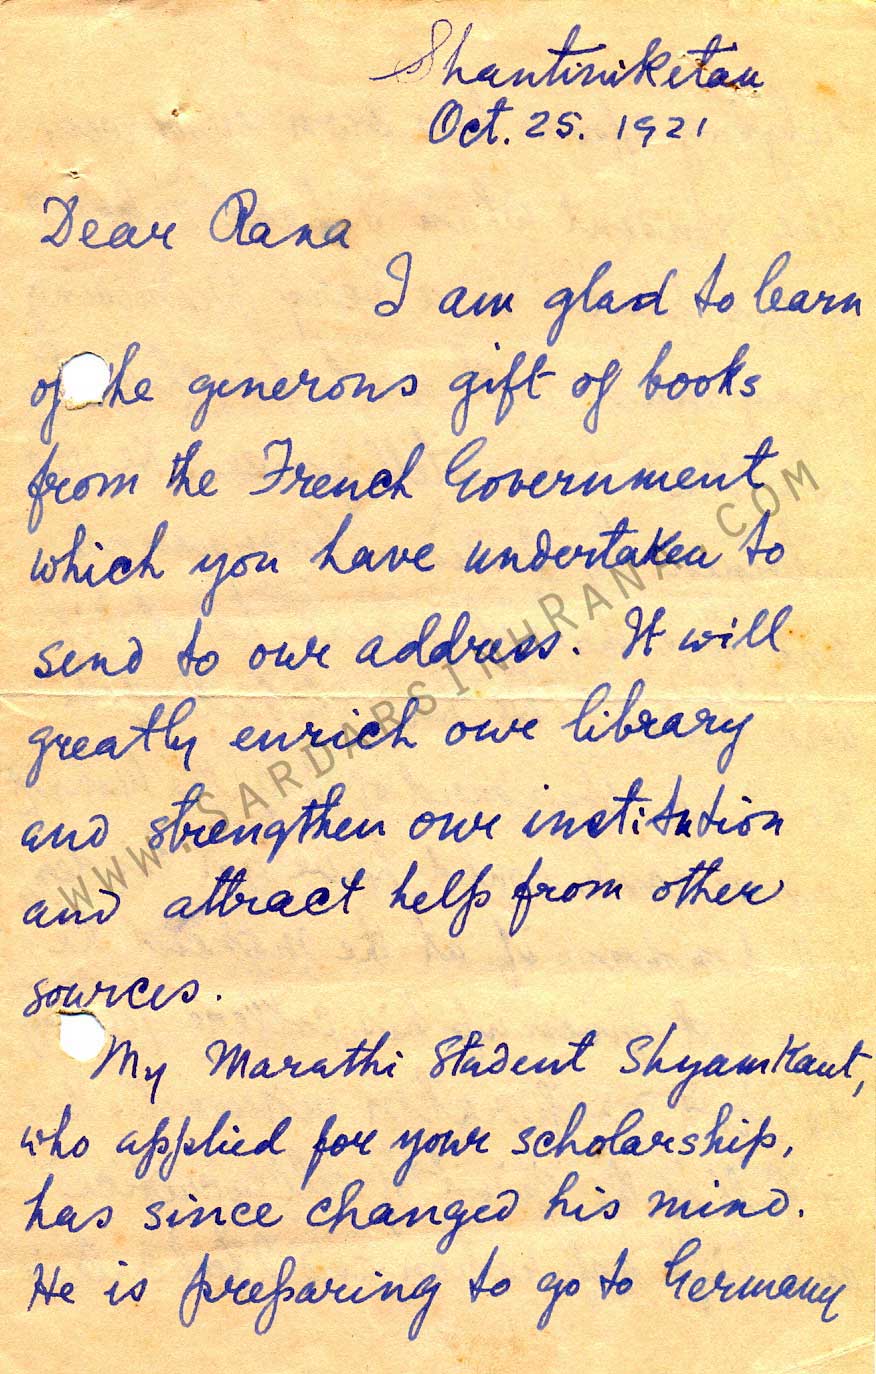 Shantiniketan
Oct. 25. 1921
Dear Rana
I am glad to learn
of the generous gift of books
from the French Government
which you have undertaken to
send to our address. It will
greatly enrich our library
and strengthen our institution
and attract help from other
sources.
My Marathi Student Shyamkant,
who applied for your scholarship,
has since changed his mind.
He is preparing to go to Germany
www.SardarsinhRana.com